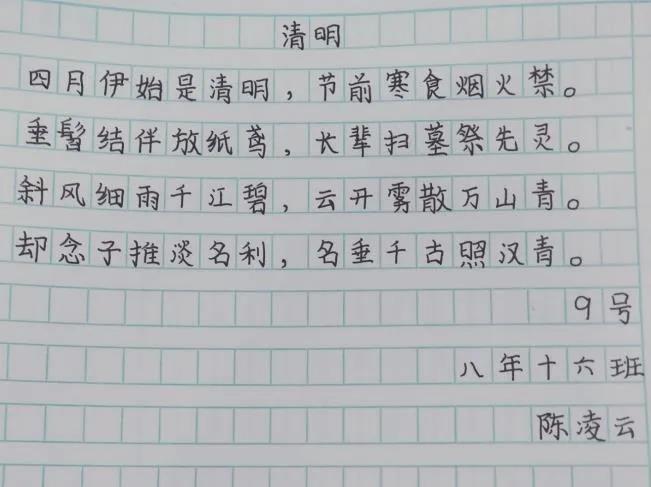 清明
四月伊始是清明，节前寒食烟火禁。
垂髫结伴放纸鸢，长辈扫墓祭先灵。
斜风细雨千江碧，云开雾散万山青。
却念子推淡名利，名垂千古照汉青。
9号
八年十六班
陈凌云